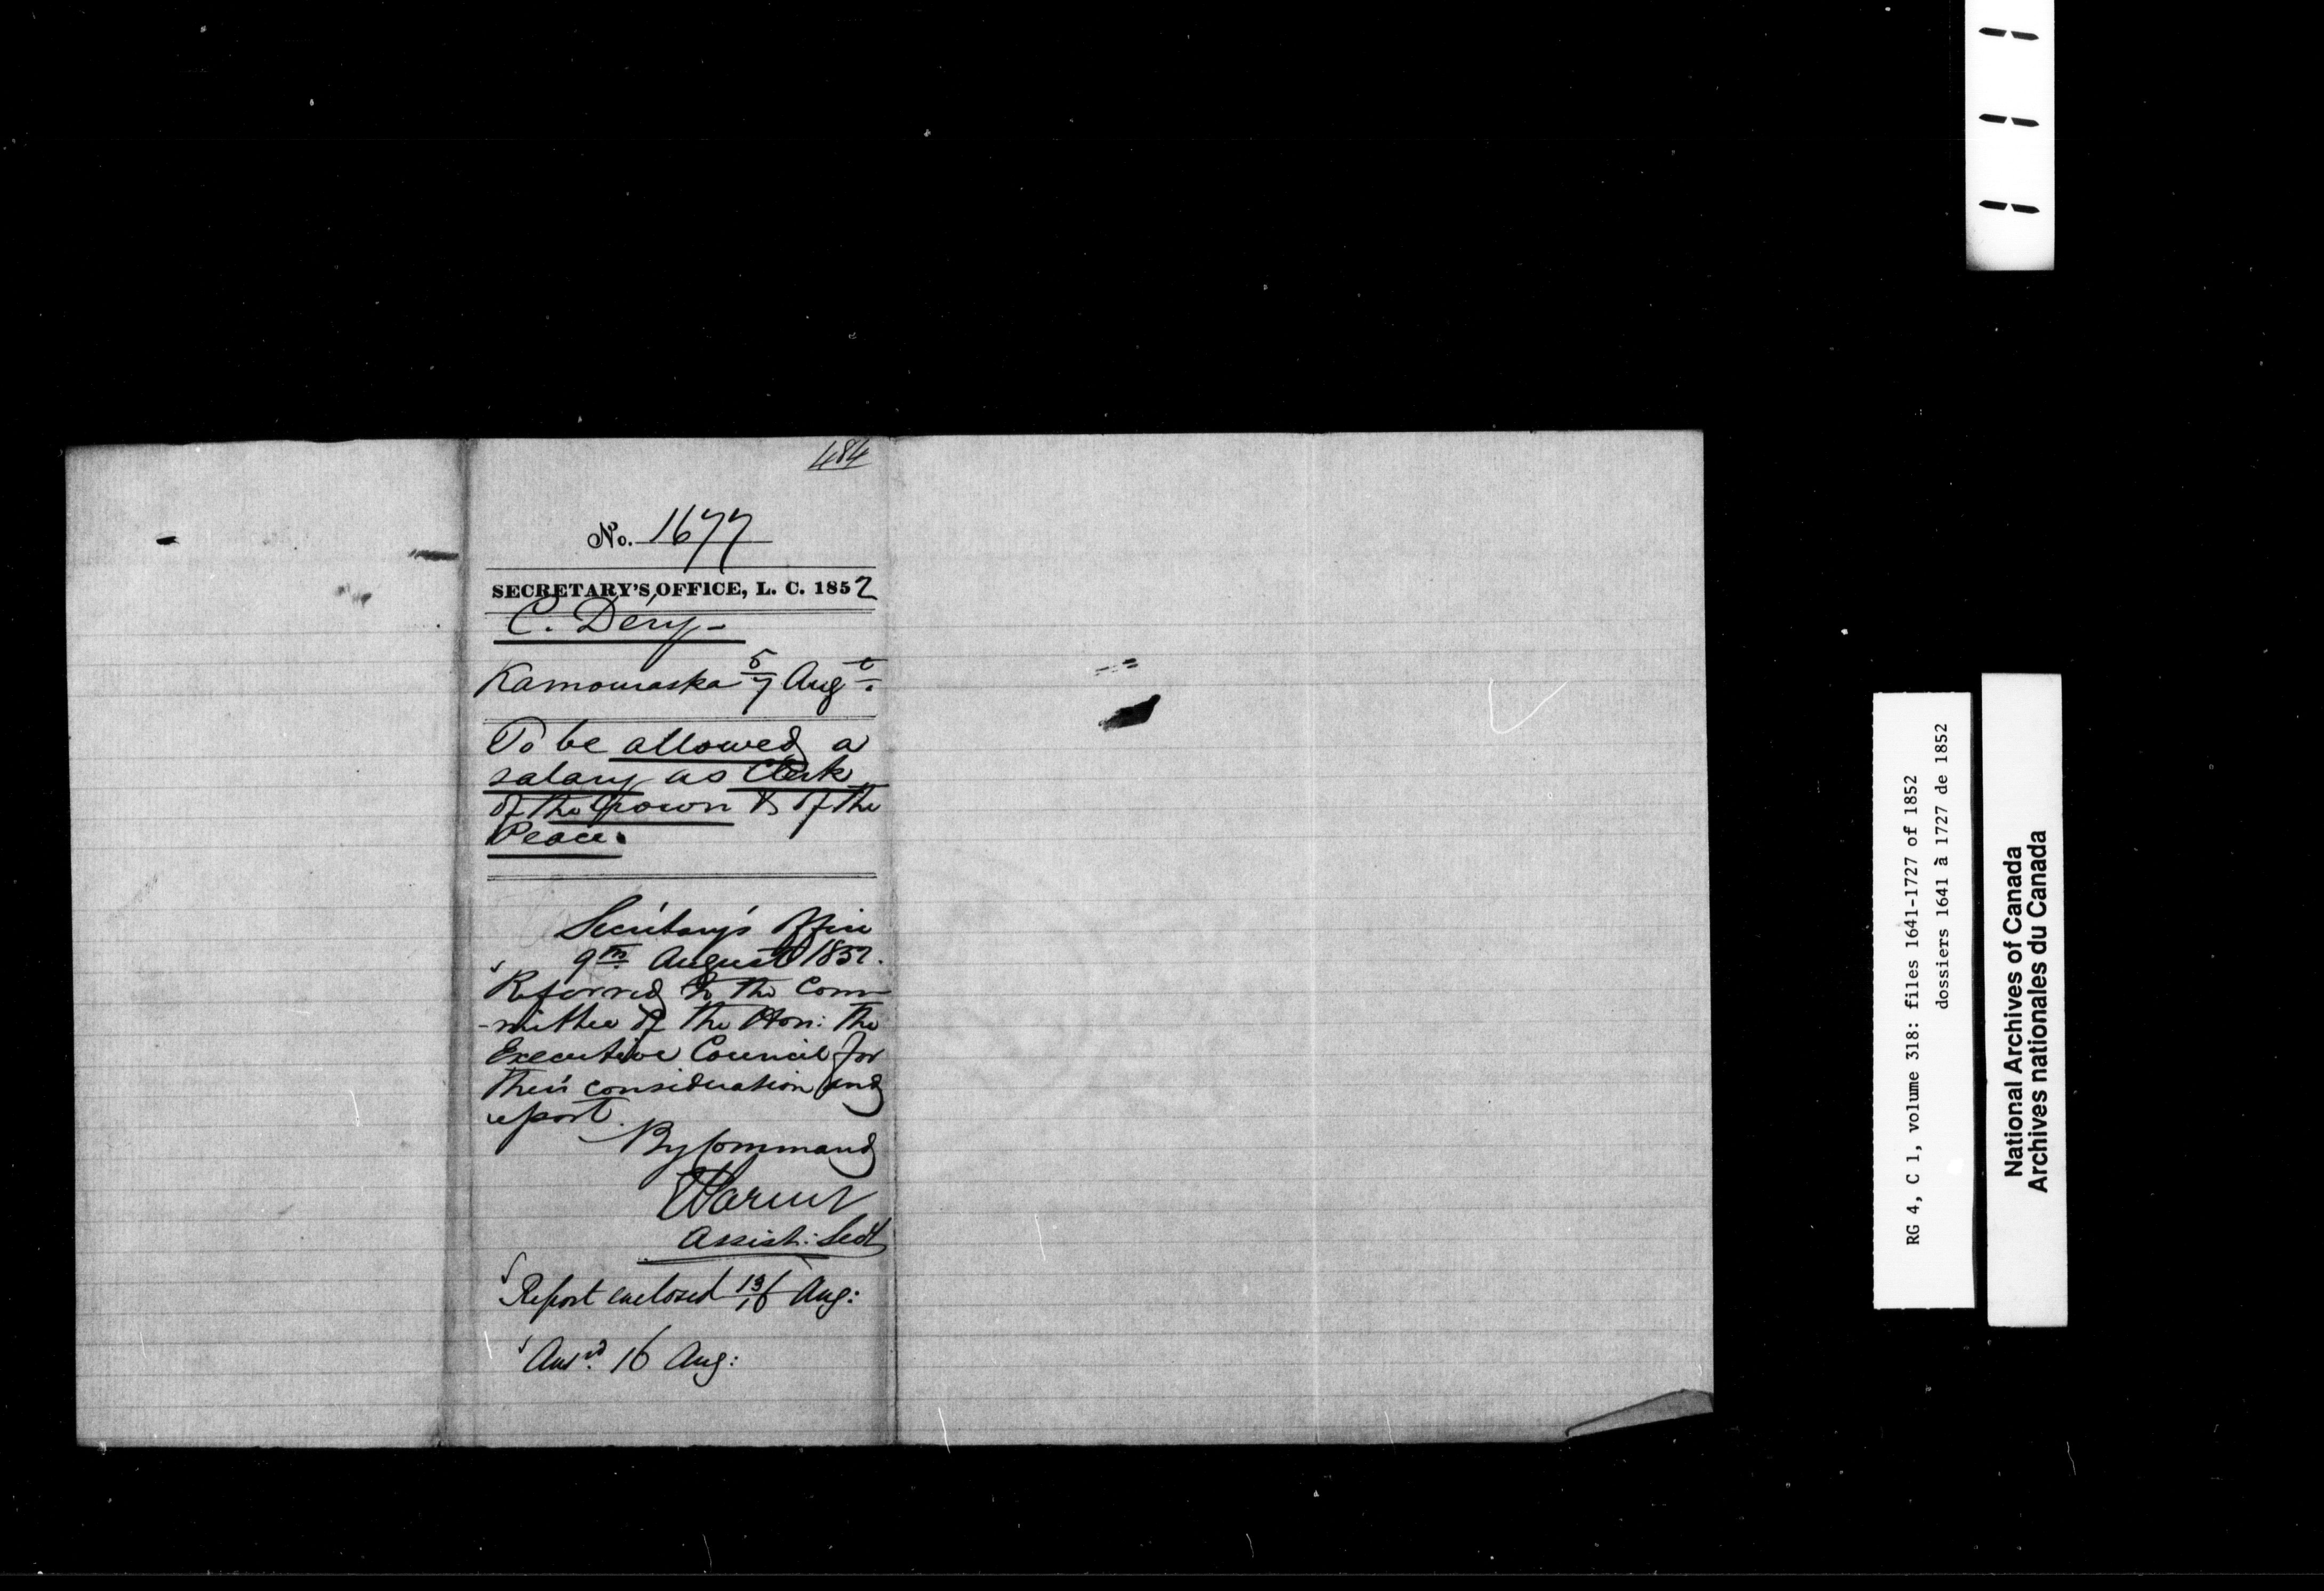 484
No. 1677
SECRETARY'S OFFICE, L. C. 1852
C. Déry -
Kamouraska 5/7 Augt.
To be allowed a
salary as Clerk
of the Crown & of the
Peace.
Secretary's Office
9th August 1852.
Referred to the Com-
-mittee of the Hon: the
Executive Council for
their consideration and
report.
By Command
E Parent
Assist: Secy
Report enclosed 13/16 Aug:
Ansd. 16 Aug:
RG 4, C 1, volume 318: files 1641-1727 of 1852
dossiers 1641 à 1727 de 1852
National Archives of Canada
Archives nationales du Canada